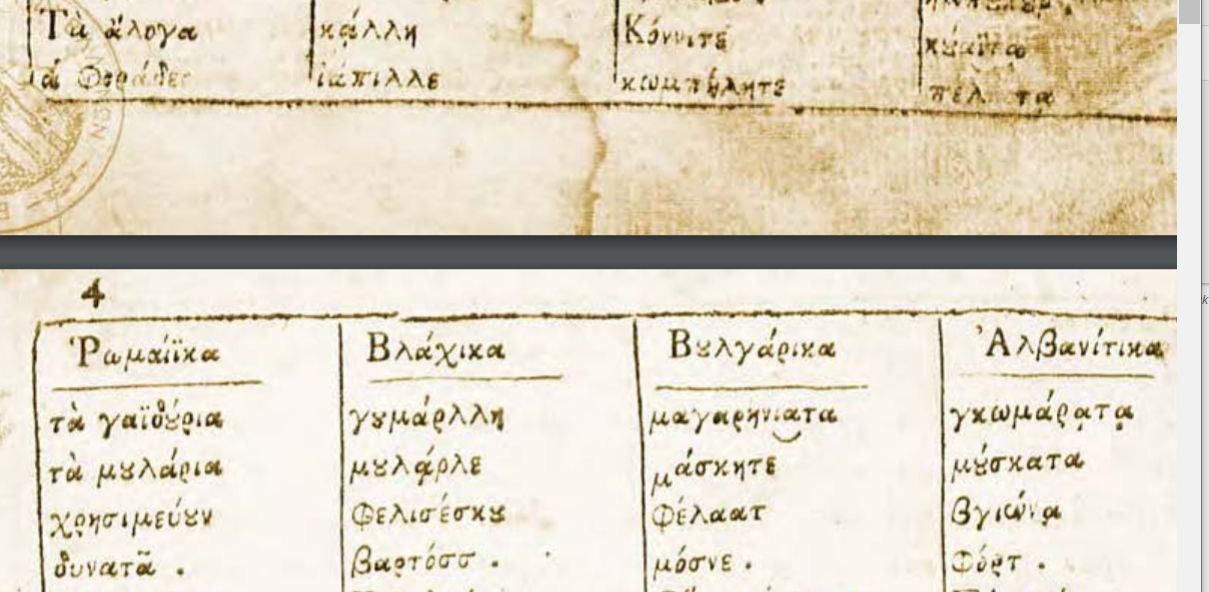 Τὰ ἄλογα κᾴλλη Κόννιτε κȣαϊτα
ᾑ Φοράδες ἰάπιλλε κωμπήλητε
4
Ῥωμαίϊκα Βλάχικα Βȣλγάρικα Ἀλβανίτικα
τὰ γαϊδȣ́ρια γȣμάρλλη μαγαρήνιατα γκωμάρατα
τὰ μȣλάρια μȣλάρλε μάσκητε μȣ́σκατα
χρησιμεύȣν Φελισέσκȣ Φέλαατ βγιώνα
δυνατᾶ . βαρτόσσ . μόσνε . Φόρτ .